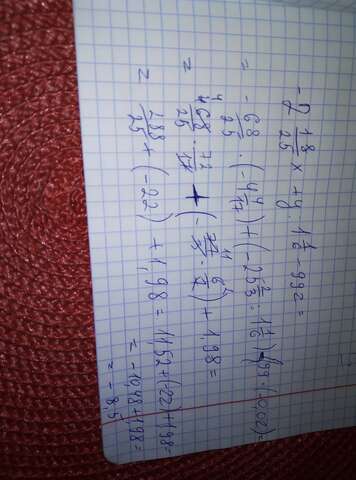 - 2 18/25 x + y : 1 1/6 - 99z =
= - 68/25 · (- 4 4/17) + (- 25 2/3 : 1 1/6) - (99 · (-0,02)) =
= 68/25 · 72/17 + (- 77/3 · 6/7) + 1,98 =
= 288/25 + (-22) + 1,98 = 11,52 + (-22) + 1,98 =
= - 10,48 + 1,98 =
= - 8,5